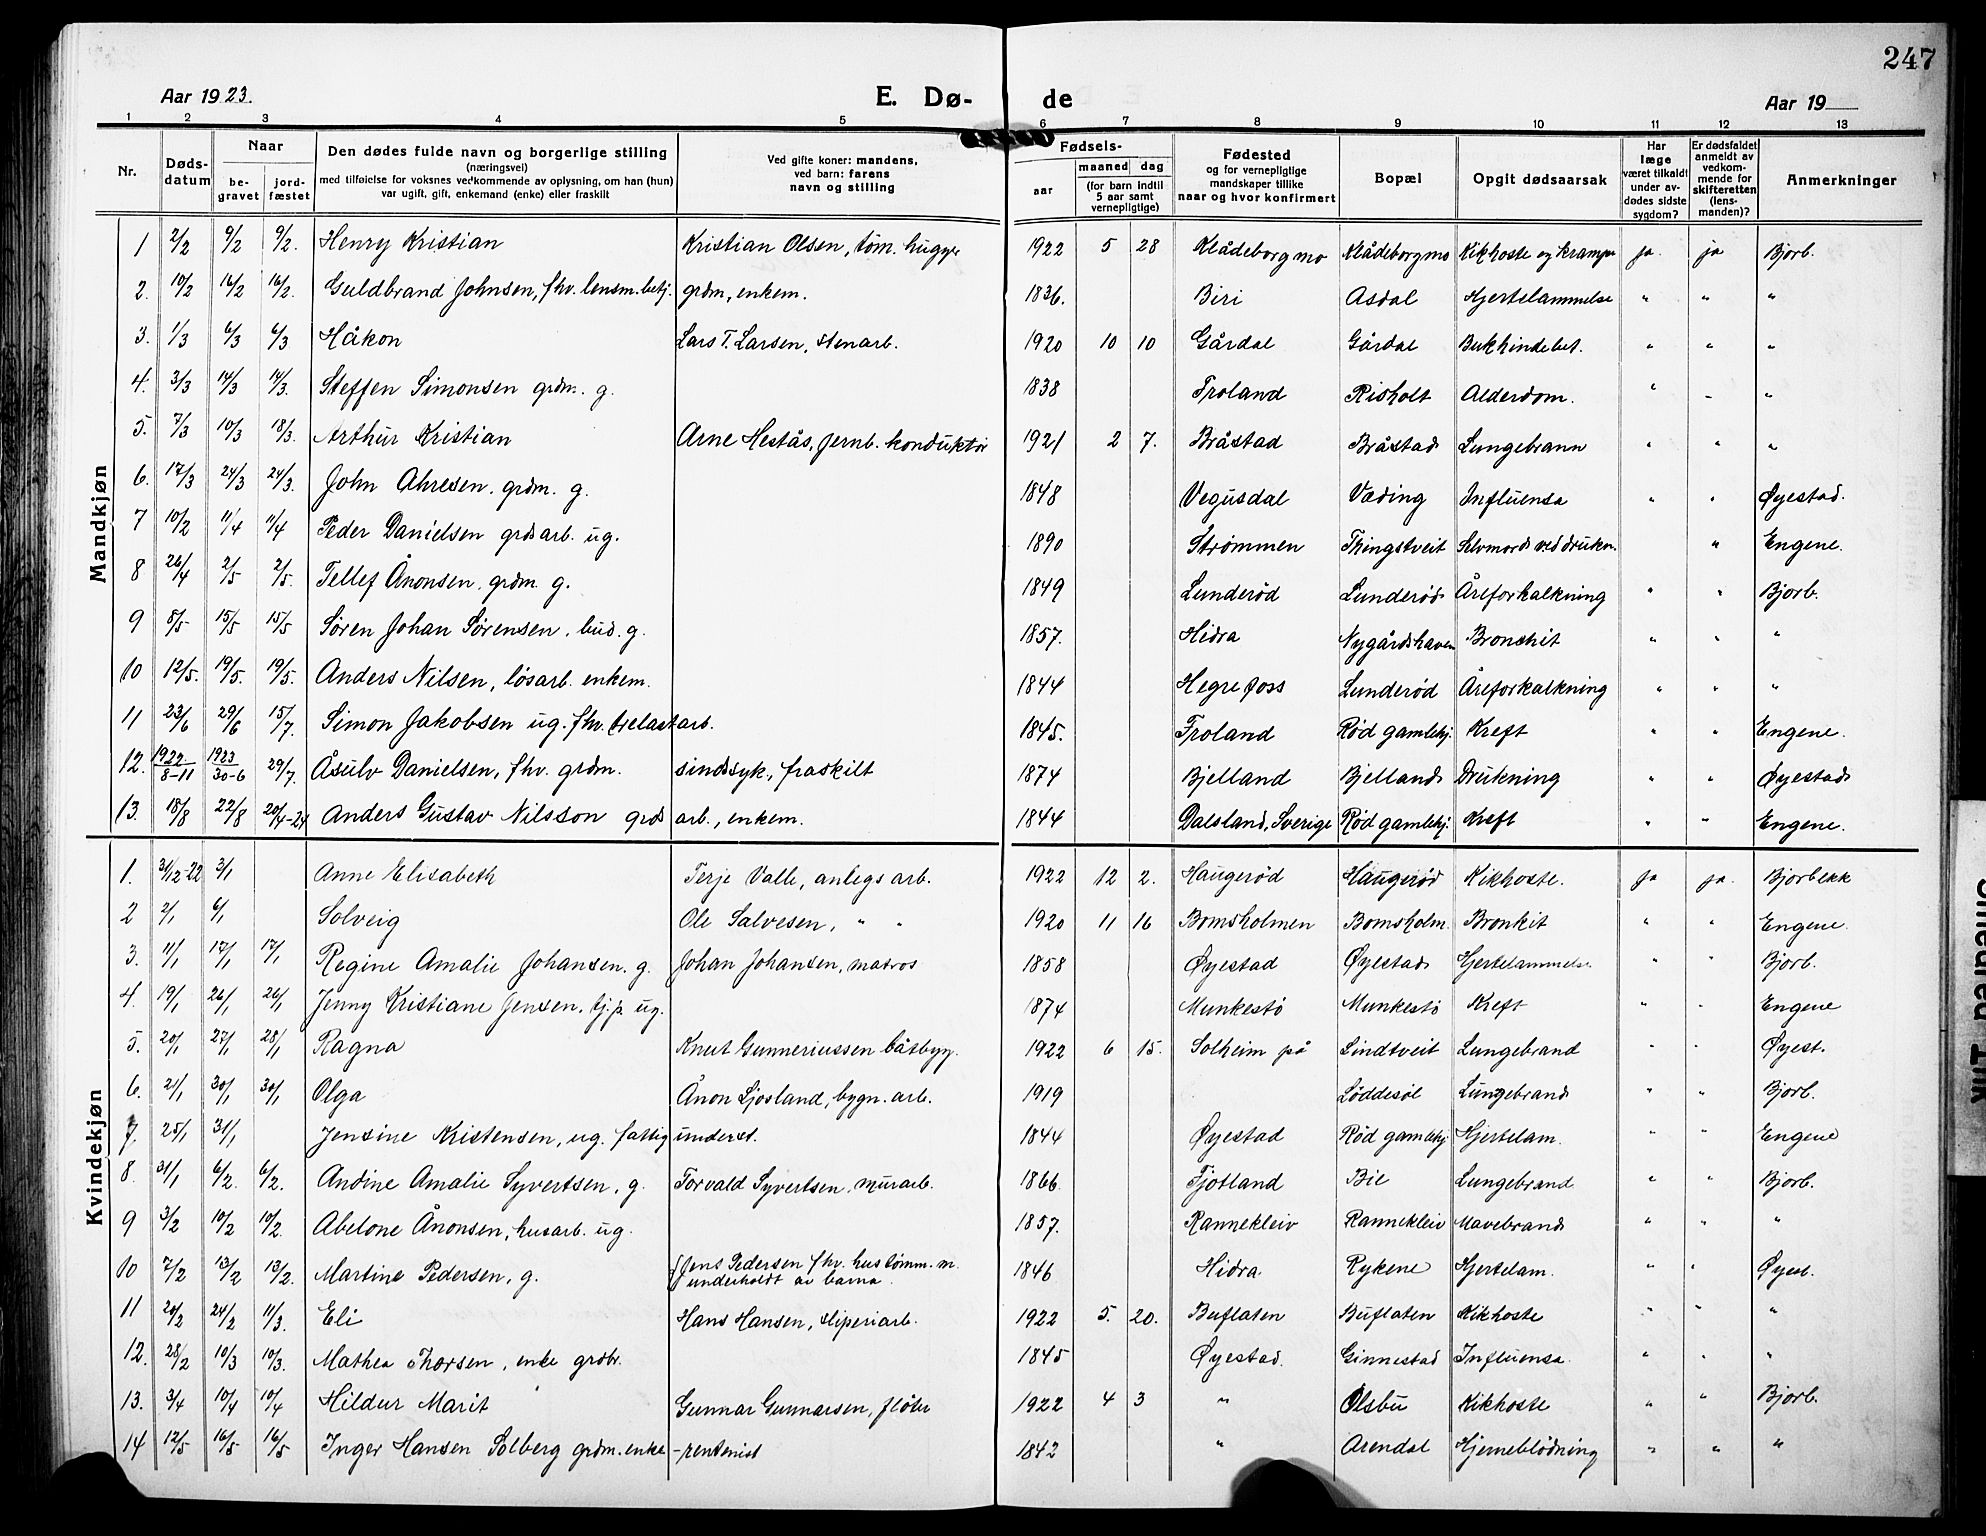 247
Aar 1923.
E. Dø-
de
Aar 19
1 2 3 4 5 6 7 8 9 10 11 12 13
Nr.
Døds-datum
Naar
be-gravet
jord-fæstet
Den dødes fulde navn og borgerlige stilling
(næringsvei)
med tilføielse for voksnes vedkommende av oplysning, om han (hun)
var ugift, gift, enkemand (enke) eller fraskilt
Ved gifte koner: mandens,
ved barn: farens
navn og stilling
Fødsels-
aar
maaned dag
(for barn indtil
5 aar samt
vernepligtige)
Fødested
og for vernepligtige
mandskaper tillike
naar og hvor konfirmert
Bopæl
Opgit dødsaarsak
Har
læge
været tilkaldt
under av-
dødes sidste
sygdom?
Er dødsfaldet
anmeldt av
vedkom-
mende for
skifteretten
(lens-
manden)?
Anmerkninger
Mandkjøn
1 2/2 9/2 9/2. Henry Kristian Kristian Olsen, tøm. hugger 1922 5 28 Klådeborgmo Klådeborgmo Kikhoste og krampe ja. ja Bjorb.
2. 10/2 16/2 16/2. Guldbrand Johnsen, fhv. lensm.betj. grdm, enkem. 1836. Biri Asdal Hjertelammelse " " "
3. 1/3 6/3 6/3 Håkon Lars T. Larsen, stenarb. 1920 10 10 Gårdal Gårdal Bukhindebet. " " "
4. 3/3 14/3 14/3. Steffen Simonsen grdm. g. 1838 Froland Risholt Alderdom. " " "
5. 7/3 10/3 18/3. Arthur Kristian Arne Hestås, jernb. konduktør 1921 2 7. Bråstad Bråstad Lungebrann " " "
6. 17/3 24/3 24/3. John Ahresen. grdm. g. 1848 Vegusdal Væding Influensa " " Øyestad.
7 10/2 11/4 11/4 Peder Danielsen grdsarb. ug. 1890 Strømmen Thingstveit Selvmord ved drukn. " Engene.
8 26/4 2/5 2/5. Tellef Ånonsen, grdm. g. 1849 Lunderød Lunderød Åreforkalkning " " Bjorb.
9 8/5 15/5 15/5 Søren Johan Sørensen, bud. g. 1857. Hidra Nygårdshaven Bronchit " " "
10 12/5. 19/5. 19/5. Anders Nilsen, løsarb. enkem. 1844 Hegrefoss Lunderød Åreforkalkning " " "
11 23/6 29/6 15/7. Simon Jakobsen ug. fhv. trelastarb. 1845. Froland Rød gamlehj. Kreft " " Engene.
12. 1922 8-11 1923 30-6 29/7. Åsulv Danielsen, fhv. grdm. sindssyk., fraskilt 1874 Bjelland Bjelland Drukning " " Øyestad
13. 18/8 22/8 20/4-24 Anders Gustav Nilsson grdsarb., enkem. 1844 Dalsland, Sverige Rød gamlehj. Kreft " " Engene.
Kvindekjøn
1. 31/12-22 3/1 Anne Elisabeth Terje Valle, anlegsarb. 1922 12 2. Haugerød Haugerød Kikhoste. ja ja. Bjorbekk
2 2/1 6/1 Solveig Ole Salvesen, " " 1920 11 16 Bomsholmen Bomsholm. Bronkit " " Engene.
3. 11/1 17/1 17/1 Regine Amalie Johansen. g. Johan Johansen, matros 1858 Øyestad Øyestad Hjertelammelse. " " Bjorb.
4. 19/1 26/1 26/1 Jenny Kristiane Jensen, tj.p. ug. 1874 Munkestø Munkestø Kreft " " Engene
5. 20/1 27/1 28/1 Ragna Knut Gunneriussen båtbyg. 1922 6 15. Solheim på Lindtveit Lungebrand " " Øyest.
6. 21/1 30/1 30/1 Olga Ånon Ljosland, bygn. arb. 1919 Løddesøl Lungebrand " " Bjorb.
7. 25/1 31/1 Jensine Kristensen, ug. fattigunderst. 1844 Øyestad Rød gamlehj Hjertelam. " " Engene
8 31/1 6/2 6/2. Andine Amalie Syvertsen, g. Torvald Syvertsen, murarb. 1866 Fjotland Bie Lungebrand " " Bjorb.
9 3/2 10/2 10/2. Abelone Ånonsen, husarb. ug. 1857. Rannekleiv Rannekleiv Mavebrand " " "
10 7/2 13/2 13/2. Martine Pedersen, g. Jens Pedersen fhv. hustømm.m. underholdt av barna. 1846 Hidra Rykene Hjertelam. " " Øyest.
11 20/2 24/2 11/3. Eli Hans Hansen, sliperiarb. 1922 5. 20. Buflaten Buflaten Kikhoste " " "
12. 28/2 10/3 10/3. Mathea Thorsen, enke grdbr. 1845 Øyestad. Ginnestad Influensa. " " "
13. 3/4 10/4 10/4 Hildur Marit Gunnar Gunnarsen, fløter 1922 4 3 " Ølsbu Kikhoste " " Bjorb.
14 12/5 16/5 16/5 Inger Hansen Solberg grdm. enke -rentenist 1842 " Arendal Hjerneblødning " " "